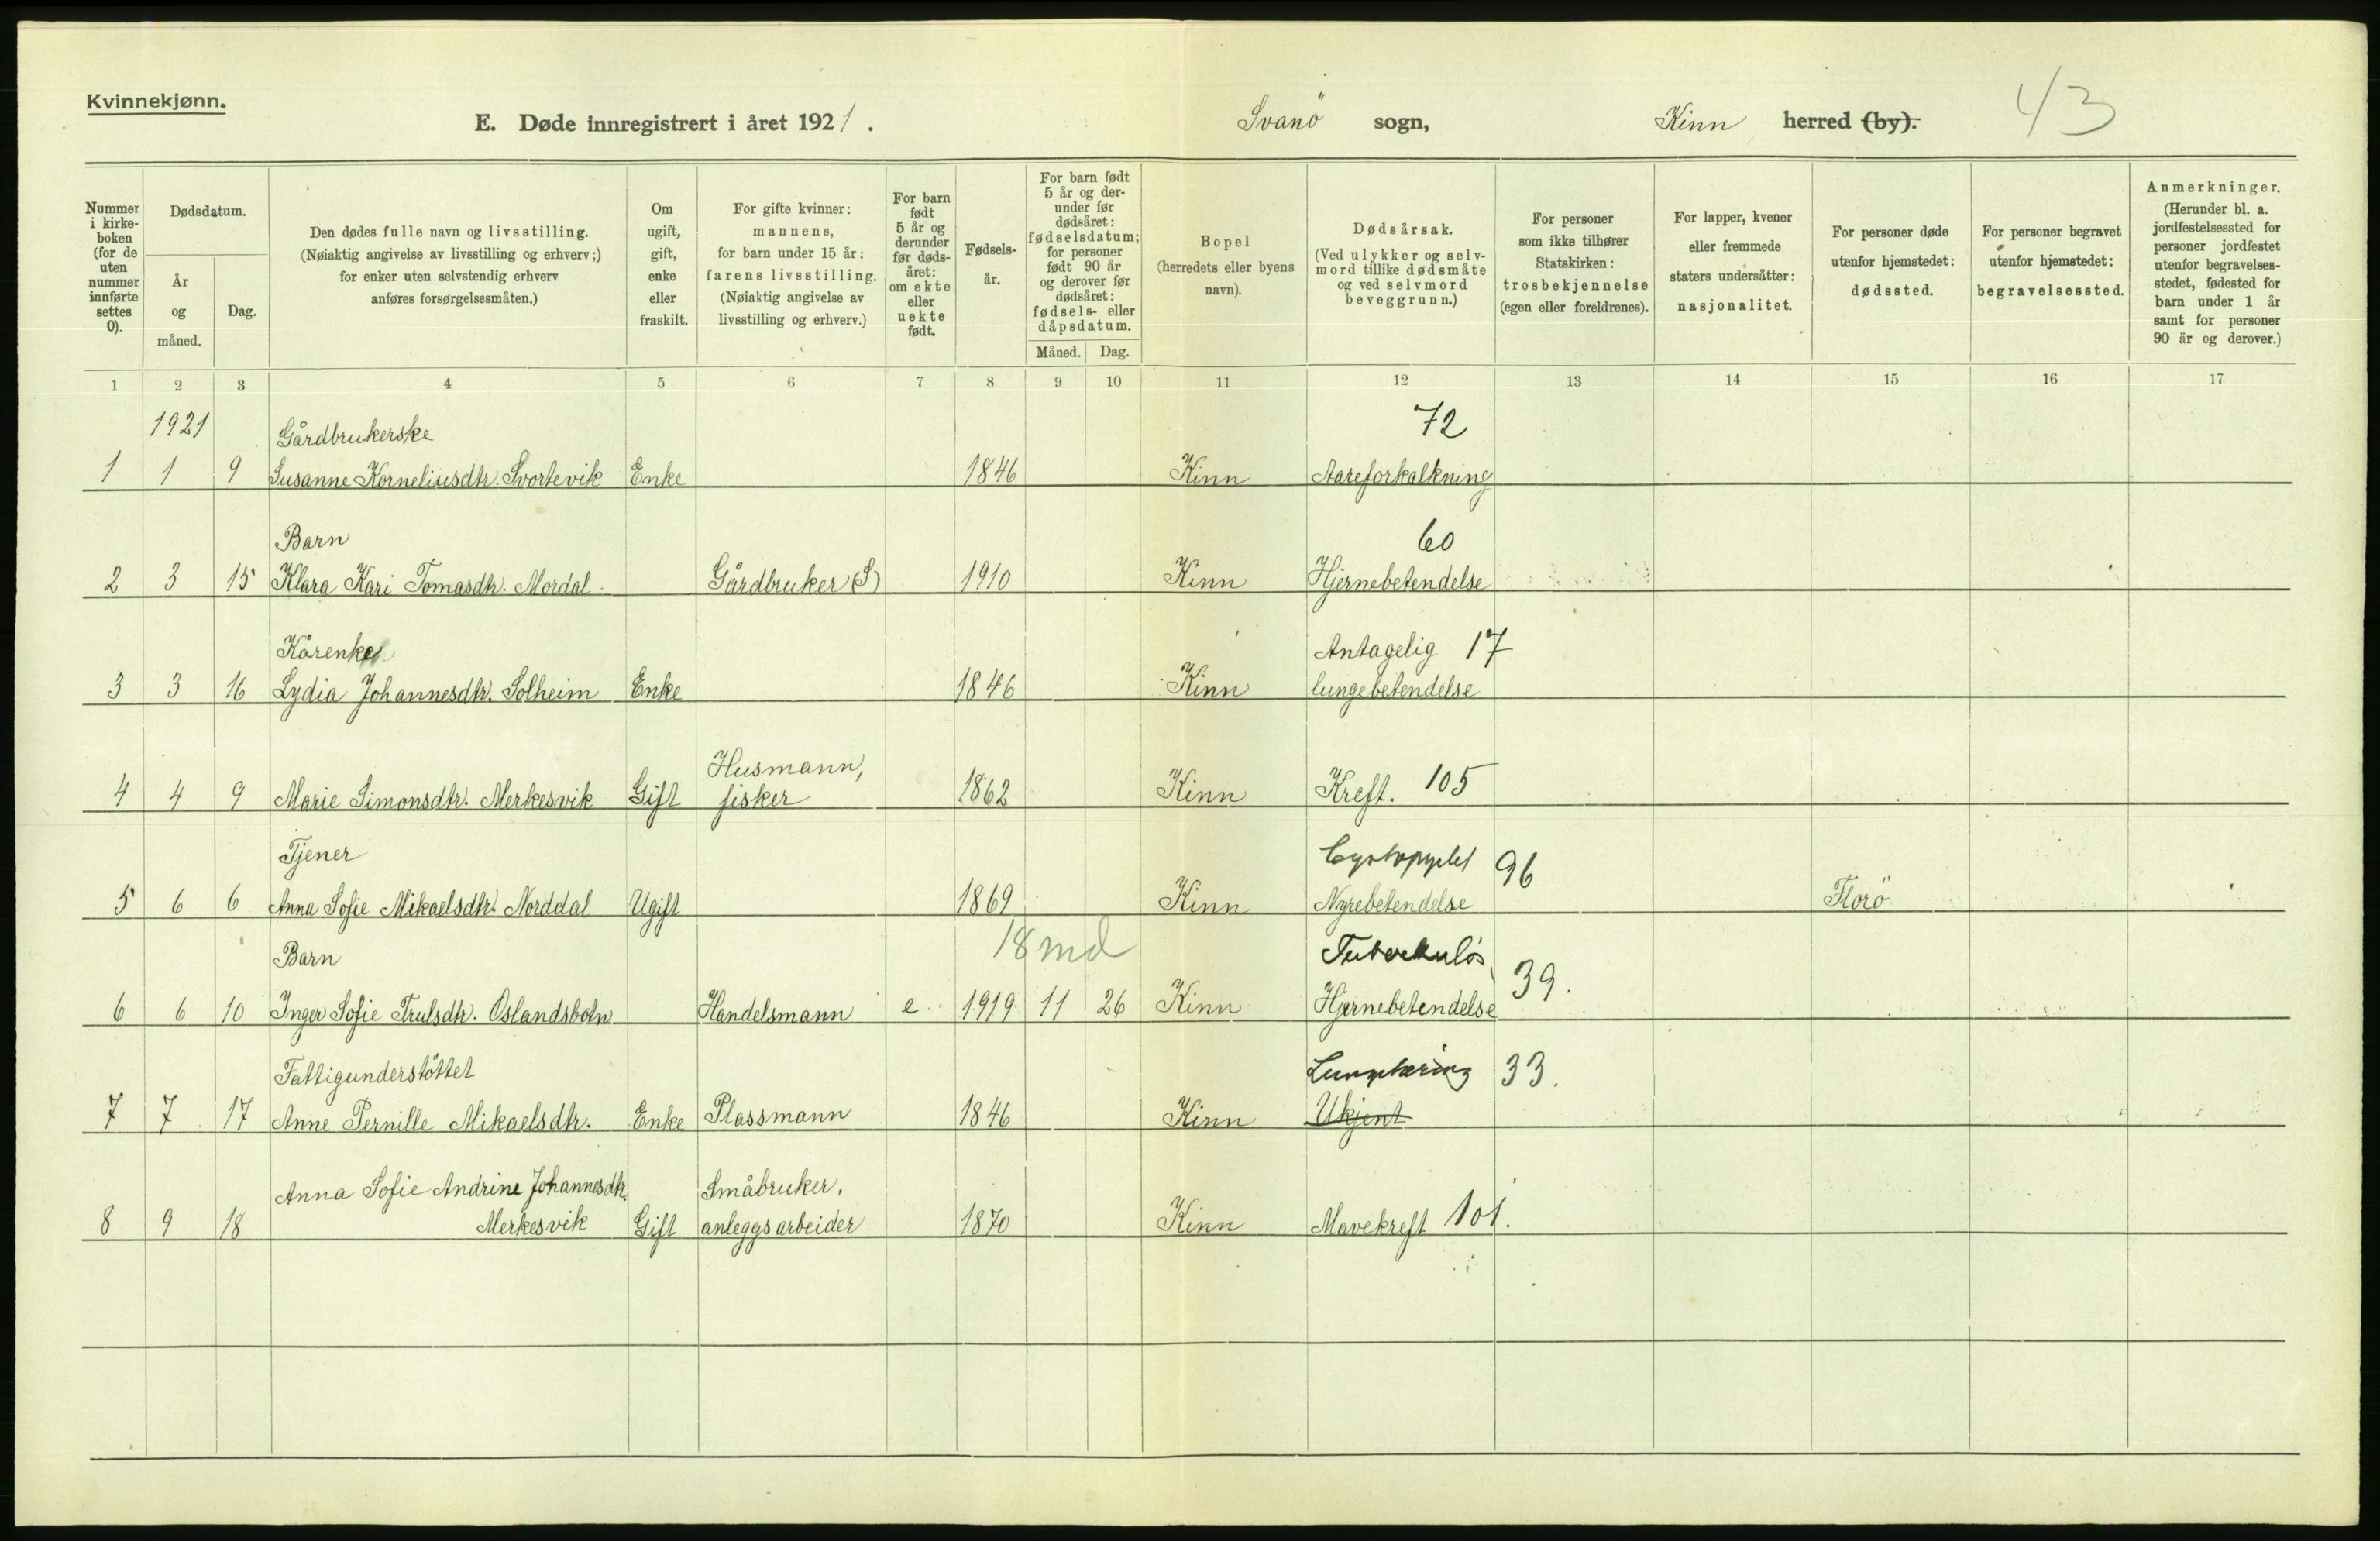 Kvinnekjønn.
E. Døde innregistrert i året 1921.
Svanö sogn,
Kinn herred (by).
43
Nummer i kirke-boken (for de uten nummer innførte settes 0).
Dødsdatum.
År og måned.
Dag.
Den dødes fulle navn og livsstilling.
(Nøiaktig angivelse av livsstilling og erhverv;)
for enker uten selvstendig erhverv
anføres forsørgelsesmåten.)
Om ugift, gift, enke eller fraskilt.
For gifte kvinner:
mannens,
for barn under 15 år:
farens livsstilling.
(Nøiaktig angivelse av
livsstilling og erhverv.)
For barn født 5 år og derunder før døds-året: om ekte eller uekte født.
Fødsels-år.
For barn født 5 år og der-under før dødsåret: fødselsdatum; for personer født 90 år og derover før dødsåret: fødsels- eller dåpsdatum.
Måned. Dag.
Bopel
(herredets eller byens
navn).
Dødsårsak.
(Ved ulykker og selv-
mord tillike dødsmåte
og ved selvmord
beveggrunn.)
For personer
som ikke tilhører
Statskirken:
trosbekjennelse
(egen eller foreldrenes).
For lapper, kvener
eller fremmede
staters undersåtter:
nasjonalitet.
For personer døde
utenfor hjemstedet:
dødssted.
For personer begravet
utenfor hjemstedet:
begravelsessted.
Anmerkninger.
(Herunder bl. a.
jordfestelsessted for
personer jordfestet
utenfor begravelses-
stedet, fødested for
barn under 1 år
samt for personer
90 år og derover.)
1 2 3 4 5 6 7 8 9 10 11 12 13 14 15 16 17
1921 Gårdbrukerske 72
1 1 9 Susanne Korneliusdtr. Svortevik Enke 1846 Kinn Aareforkalkning
Barn 60
2 3 15 Klara Kari Tomasdtr. Mordal. Gårdbruker (S) 1910 Kinn Hjernebetendelse
Kårenke Antagelig 17
3 3 16 Lydia Johannesdtr. Solheim Enke 1846 Kinn lungebetendelse
Husmann,
4 4 9 Marie Simonsdtr. Merkesvik Gift fisker 1862 Kinn Kreft. 105
Tjener Cystopyelit 96
5 6 6 Anna Sofie Mikaelsdtr. Norddal Ugift 1869 Kinn Nyrebetendelse Florö
Barn 18 md Tuberkuløs 39.
6 6 10 Inger Sofie Trulsdtr. Oslandsbotn Handelsmann e. 1919 11 26 Kinn Hjernebetendelse
Fattigunderstöttet Lungetæring 33.
7 7 17 Anne Pernille Mikaelsdtr. Enke Plassmann 1846 Kinn Ukjent
Anna Sofie Andrine Johannesdtr. Småbruker,
8 9 18 Merkesvik Gift anleggsarbeider 1870 Kinn Mavekreft 101.